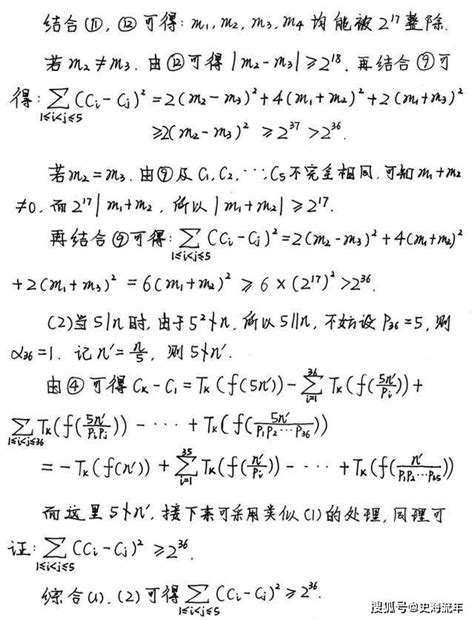 结合⑪,⑫可得:m₁,m₂,m₃,m₄均能被2¹⁷整除.
若m₂≠m₃.由⑫可得|m₂-m₃|≥2¹⁸.再结合⑨可
得:∑_{1≤i<j≤5}(Ci-Cj)²=2(m₂-m₃)²+4(m₁+m₂)²+2(m₁+m₃)²
≥2(m₂-m₃)²≥2³⁷>2³⁶.
若m₂=m₃.由⑨及C₁,C₂,⋯C₅不完全相同.可知m₁+m₂
≠0.而2¹⁷|m₁+m₂,所以|m₁+m₂|≥2¹⁷.
再结合⑨可得:∑_{1≤i<j≤5}(Ci-Cj)²=2(m₂-m₃)²+4(m₁+m₂)²
+2(m₁+m₃)²=6(m₁+m₂)²≥6×(2¹⁷)²>2³⁶.
(2)当5|n时.由于5²∤n.所以5||n,不妨设P₃₆=5,则
α₃₆=1.记n′=n/5,则5∤n′.
由④可得Cₖ-C₁=Tₖ(f(5n′))-∑_{i=1}^{36}Tₖ(f(5n′/Pi))+
∑_{1≤i<j≤36}Tₖ(f(5n′/PiPj))-⋯+Tₖ(f(5n′/P₁P₂⋯P₃₆))
=-Tₖ(f(n′))+∑_{i=1}^{35}Tₖ(f(n′/Pi))-⋯+Tₖ(f(n′/P₁P₂⋯P₃₅))
而这里5∤n′,接下来可采用类似(1)的处理,同理可
证:∑_{1≤i<j≤5}(Ci-Cj)²≥2³⁶.
综合(1),(2)可得∑_{1≤i<j≤5}(Ci-Cj)²≥2³⁶.
搜狐号@史海流年